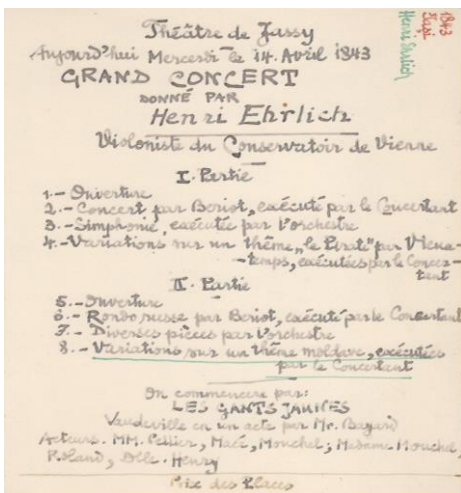 1843
Iași
Henri Ehrlich
Théâtre de Jassy
Aujourd'hui Mercredi le 14. Avril 1843
GRAND CONCERT
DONNÉ PAR
Henri Ehrlich
Violoniste du Conservatoir de Vienne
I. Partie
1.- Ouverture
2.- Concert par Beriot, exécuté par le Concertant
3.- Simphonie, exécutée par l'orchestre
4.- Variations sur un thême „le Pirate" par Vieux-
-temps, exécutées par le Concer-
tant
II. Partie
5.- Ouverture
6.- Rondo russe par Beriot, exécuté par le Concertant
7.- Diverses pièces par l'orchestre
8.- Variations sur un thême moldave, exécutées
par le Concertant
On commencera par:
LES GANTS JAUNES
Vaudeville en un acte par Mr. Bayard
Acteurs. MM. Pellier, Macé, Mouchel; Madame Mouchel,
Henry
Prix des Places